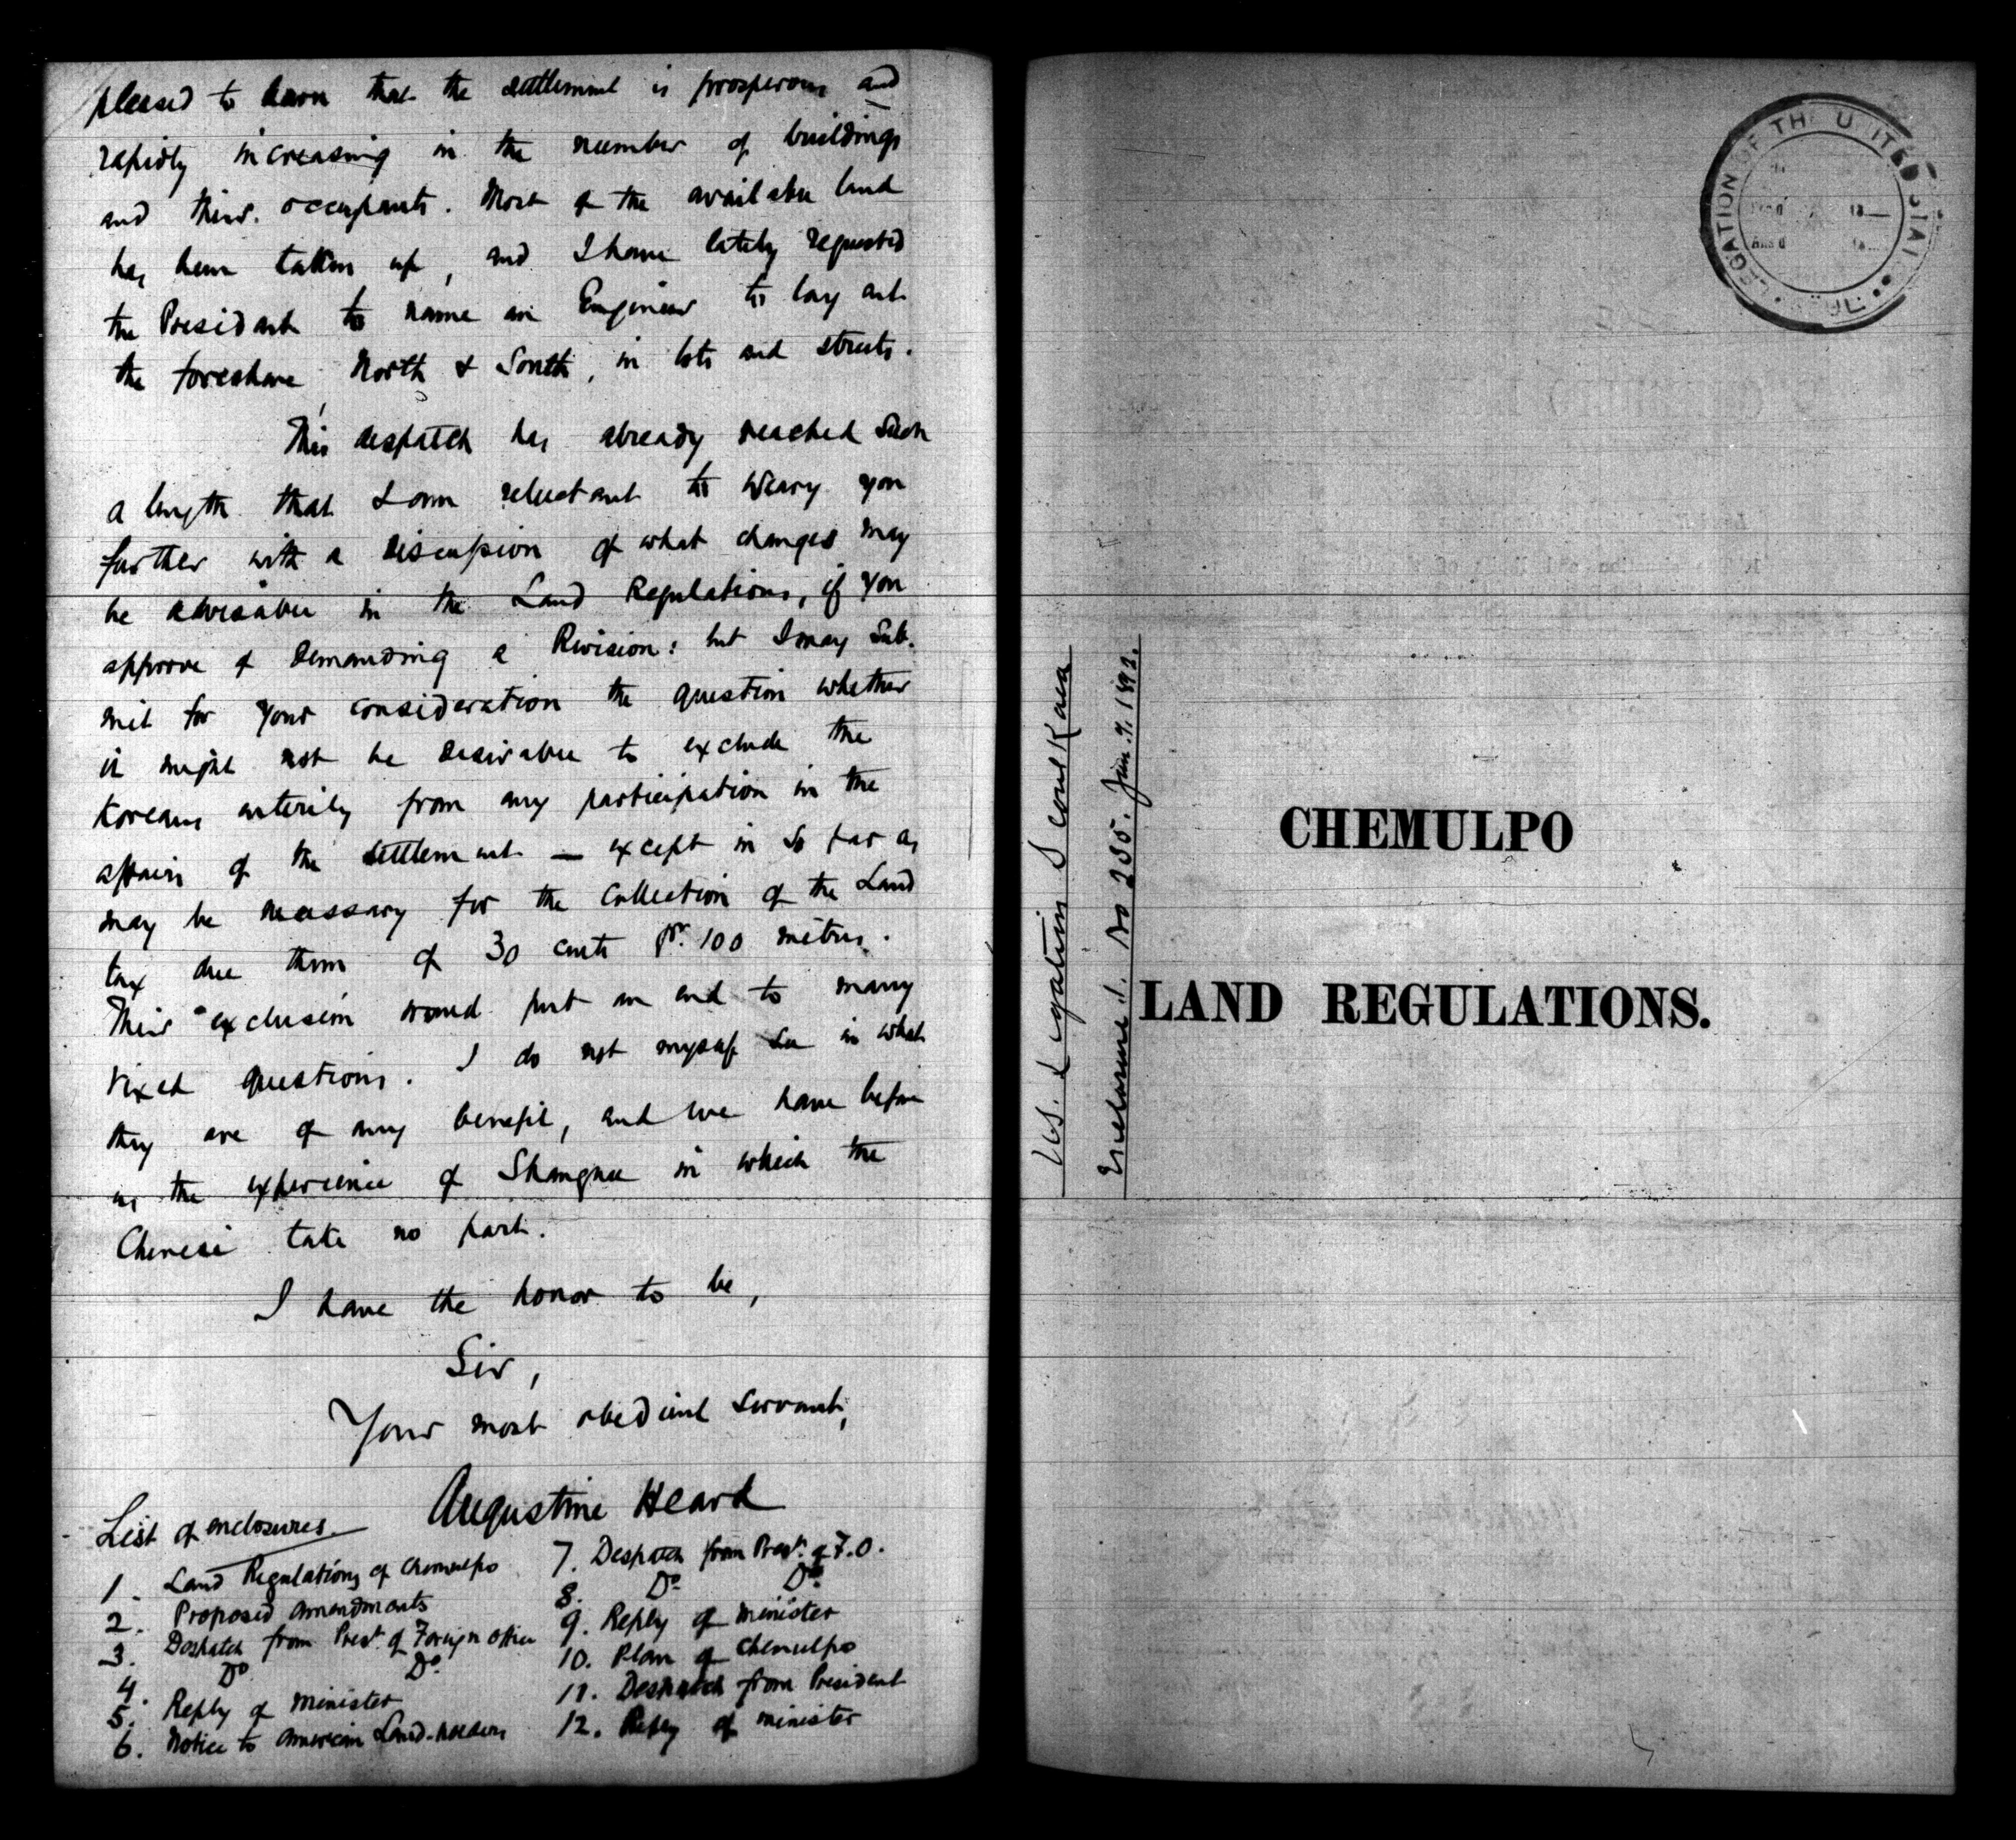 pleased to learn that the settlement is prosperous and
rapidly increasing in the number of buildings
and their occupants. Most of the available land
has been taken up, and I have lately requested
the President to name an Engineer to lay out
the foreshore North & South, in lots and streets.
This despatch has already reached such
a length that I am reluctant to weary you
further with a discussion of what changes may
be advisable in the Land Regulations, if you
approve of demanding a Revision: but I may sub-
mit for your consideration the question whether
it might not be desirable to exclude the
Koreans entirely from any participation in the
affairs of the settlement — except in so far as
may be necessary for the collection of the Land
tax due them of 30 cents pr. 100 metres.
Their exclusion would put an end to many
vexed questions. I do not myself see in what
they are of any benefit, and we have before
us the experience of Shanghae in which the
Chinese take no part.
I have the honor to be,
Sir,
Your most obedient servant,
Augustine Heard
List of enclosures.
1. Land Regulations of Chemulpo
2. Proposed amendments
3. Despatch from Prest. of Foreign Office
4. Do Do
5. Reply of Minister
6. Notice to American Land-holders
7. Despatch from Prest. of F.O.
8. Do Do
9. Reply of Minister
10. Plan of Chemulpo
11. Despatch from President
12. Reply of Minister
LEGATION OF THE UNITED STATES
U.S. Legation Seoul Korea
Enclosure 1. No 255. Jan. 7. 1892.
CHEMULPO
LAND REGULATIONS.